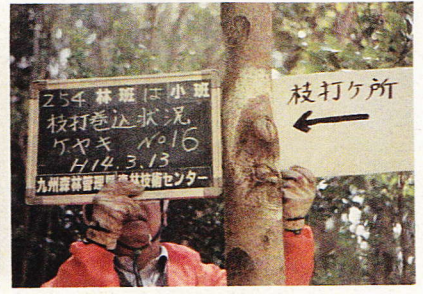 254林班は小班
枝打巻込状況
ケヤキ No16
H14.3.13
九州森林管理局森林技術センター
枝打ケ所